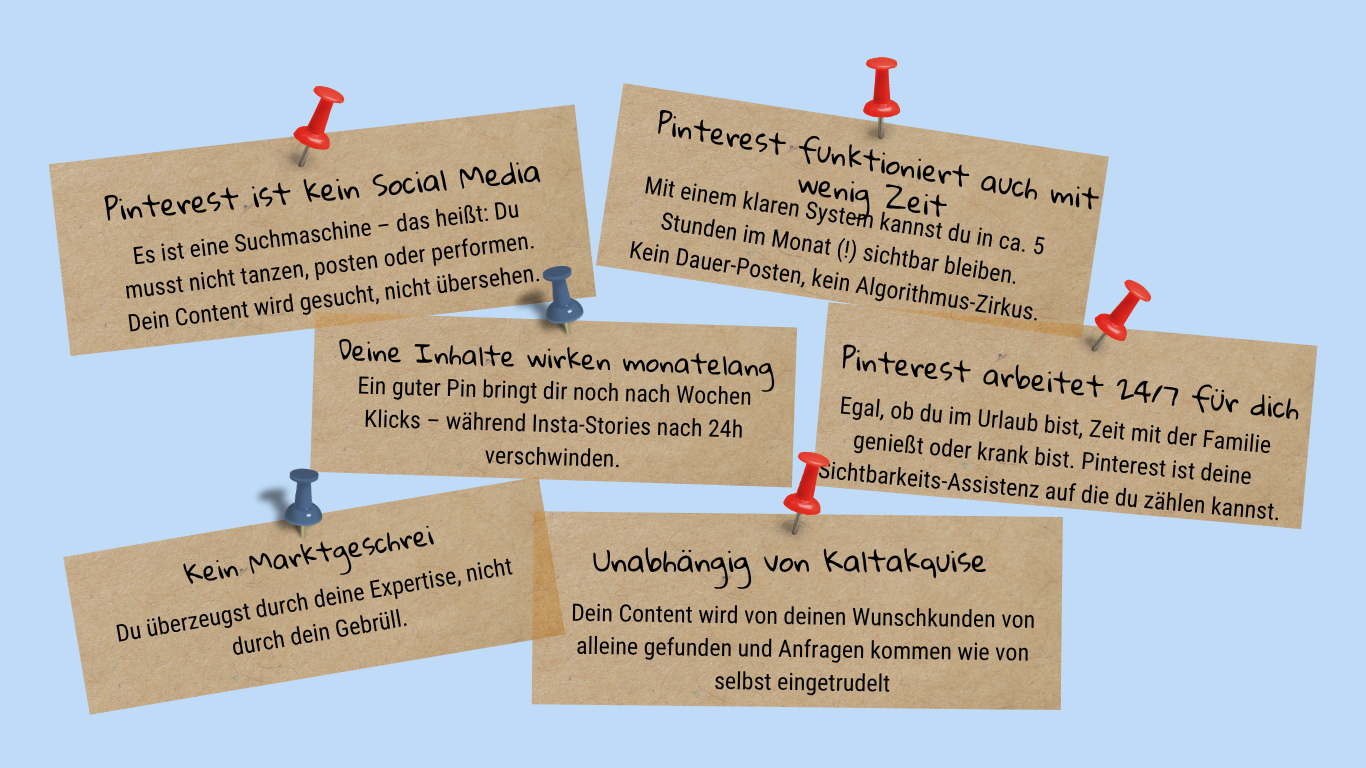 Pinterest ist kein Social Media
Es ist eine Suchmaschine – das heißt: Du
musst nicht tanzen, posten oder performen.
Dein Content wird gesucht, nicht übersehen.
Pinterest funktioniert auch mit
wenig Zeit
Mit einem klaren System kannst du in ca. 5
Stunden im Monat (!) sichtbar bleiben.
Kein Dauer-Posten, kein Algorithmus-Zirkus.
Deine Inhalte wirken monatelang
Ein guter Pin bringt dir noch nach Wochen
Klicks – während Insta-Stories nach 24h
verschwinden.
Pinterest arbeitet 24/7 für dich
Egal, ob du im Urlaub bist, Zeit mit der Familie
genießt oder krank bist. Pinterest ist deine
Sichtbarkeits-Assistenz auf die du zählen kannst.
Kein Marktgeschrei
Du überzeugst durch deine Expertise, nicht
durch dein Gebrüll.
Unabhängig von Kaltakquise
Dein Content wird von deinen Wunschkunden von
alleine gefunden und Anfragen kommen wie von
selbst eingetrudelt